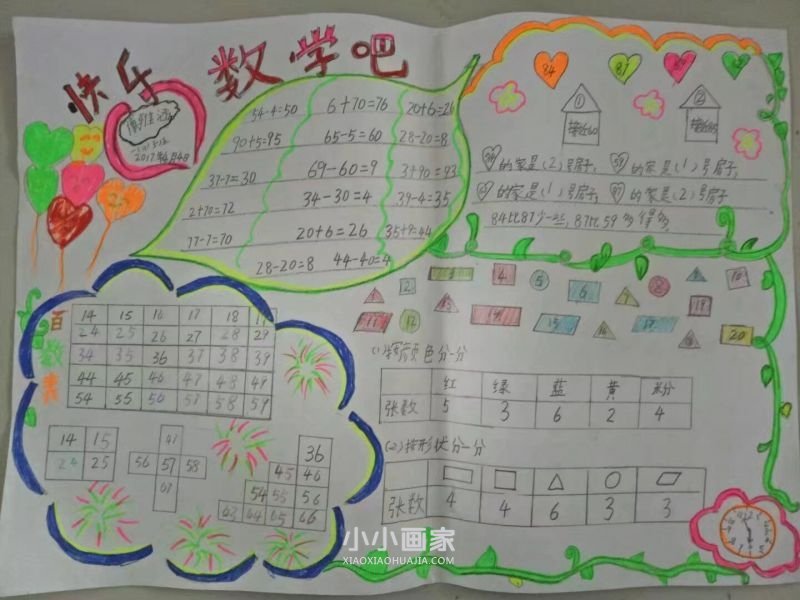 快乐
数学吧
2017年4月4日
54-4=50
6+70=76
20+6=26
90+5=95
65-5=60
28-20=8
37-7=30
69-60=9
3+90=93
34-30=4
39-4=35
2+70=72
20+6=26
35+9=44
77-7=70
28-20=8
44-40=4
84
87
① ②
接近60
的家是(2)号房子,
的家是(1)号房子,
的家是(1)号房子,
的家是(2)号房子
84比87少一些, 87比59多得多
百数表
14 15 16 17 18 19
24 25 26 27 28 29
34 35 36 37 38 39
44 45 46 47 48 49
54 55 56 57 58 59
14 15
24 25
47
56 57 58
67
36
45 46
54 55 56
63 64 65 66
1 2 3 4 5 6 7 8 9 10
11 12 13 14 15 16 17 18 19 20
(1)按颜色分一分
红 绿 蓝 黄 粉
张数 5 3 6 2 4
(2)按形状分一分
张数 4 4 6 3 3
小小画家
XIAOXIAOHUAJIA.COM